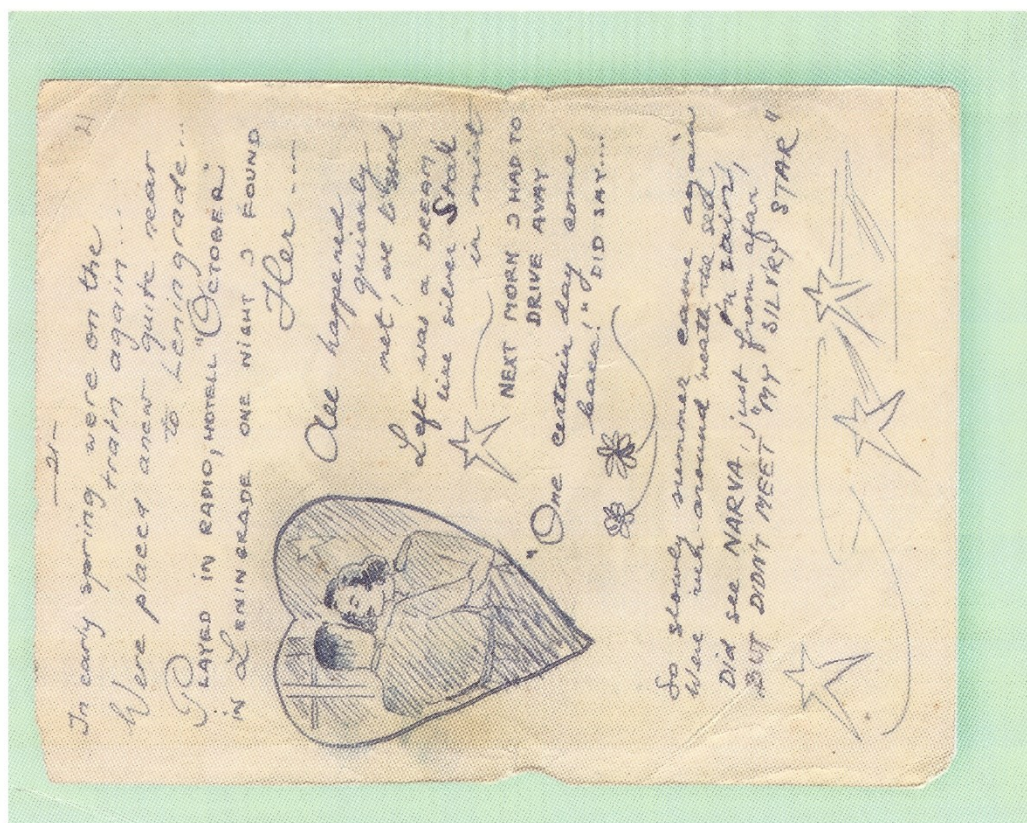 —21—
21
In early spring were on the
train again...
Were placed anew quite near
to Leningrade...
PLAYED IN RADIO, HOTELL "OCTOBER"
IN LENINGRADE ONE NIGHT I FOUND
Her----
All happened
quickly
met, we
Left was a DREAM
like silver
in mist
NEXT MORN I HAD TO
DRIVE AVAY
"One certain day come
back!" DID SAY....
So slowly summer came again
Were around neath the
Did see NARVA, just from afar,
BUT DIDN'T MEET "MY SILV'RY STAR"